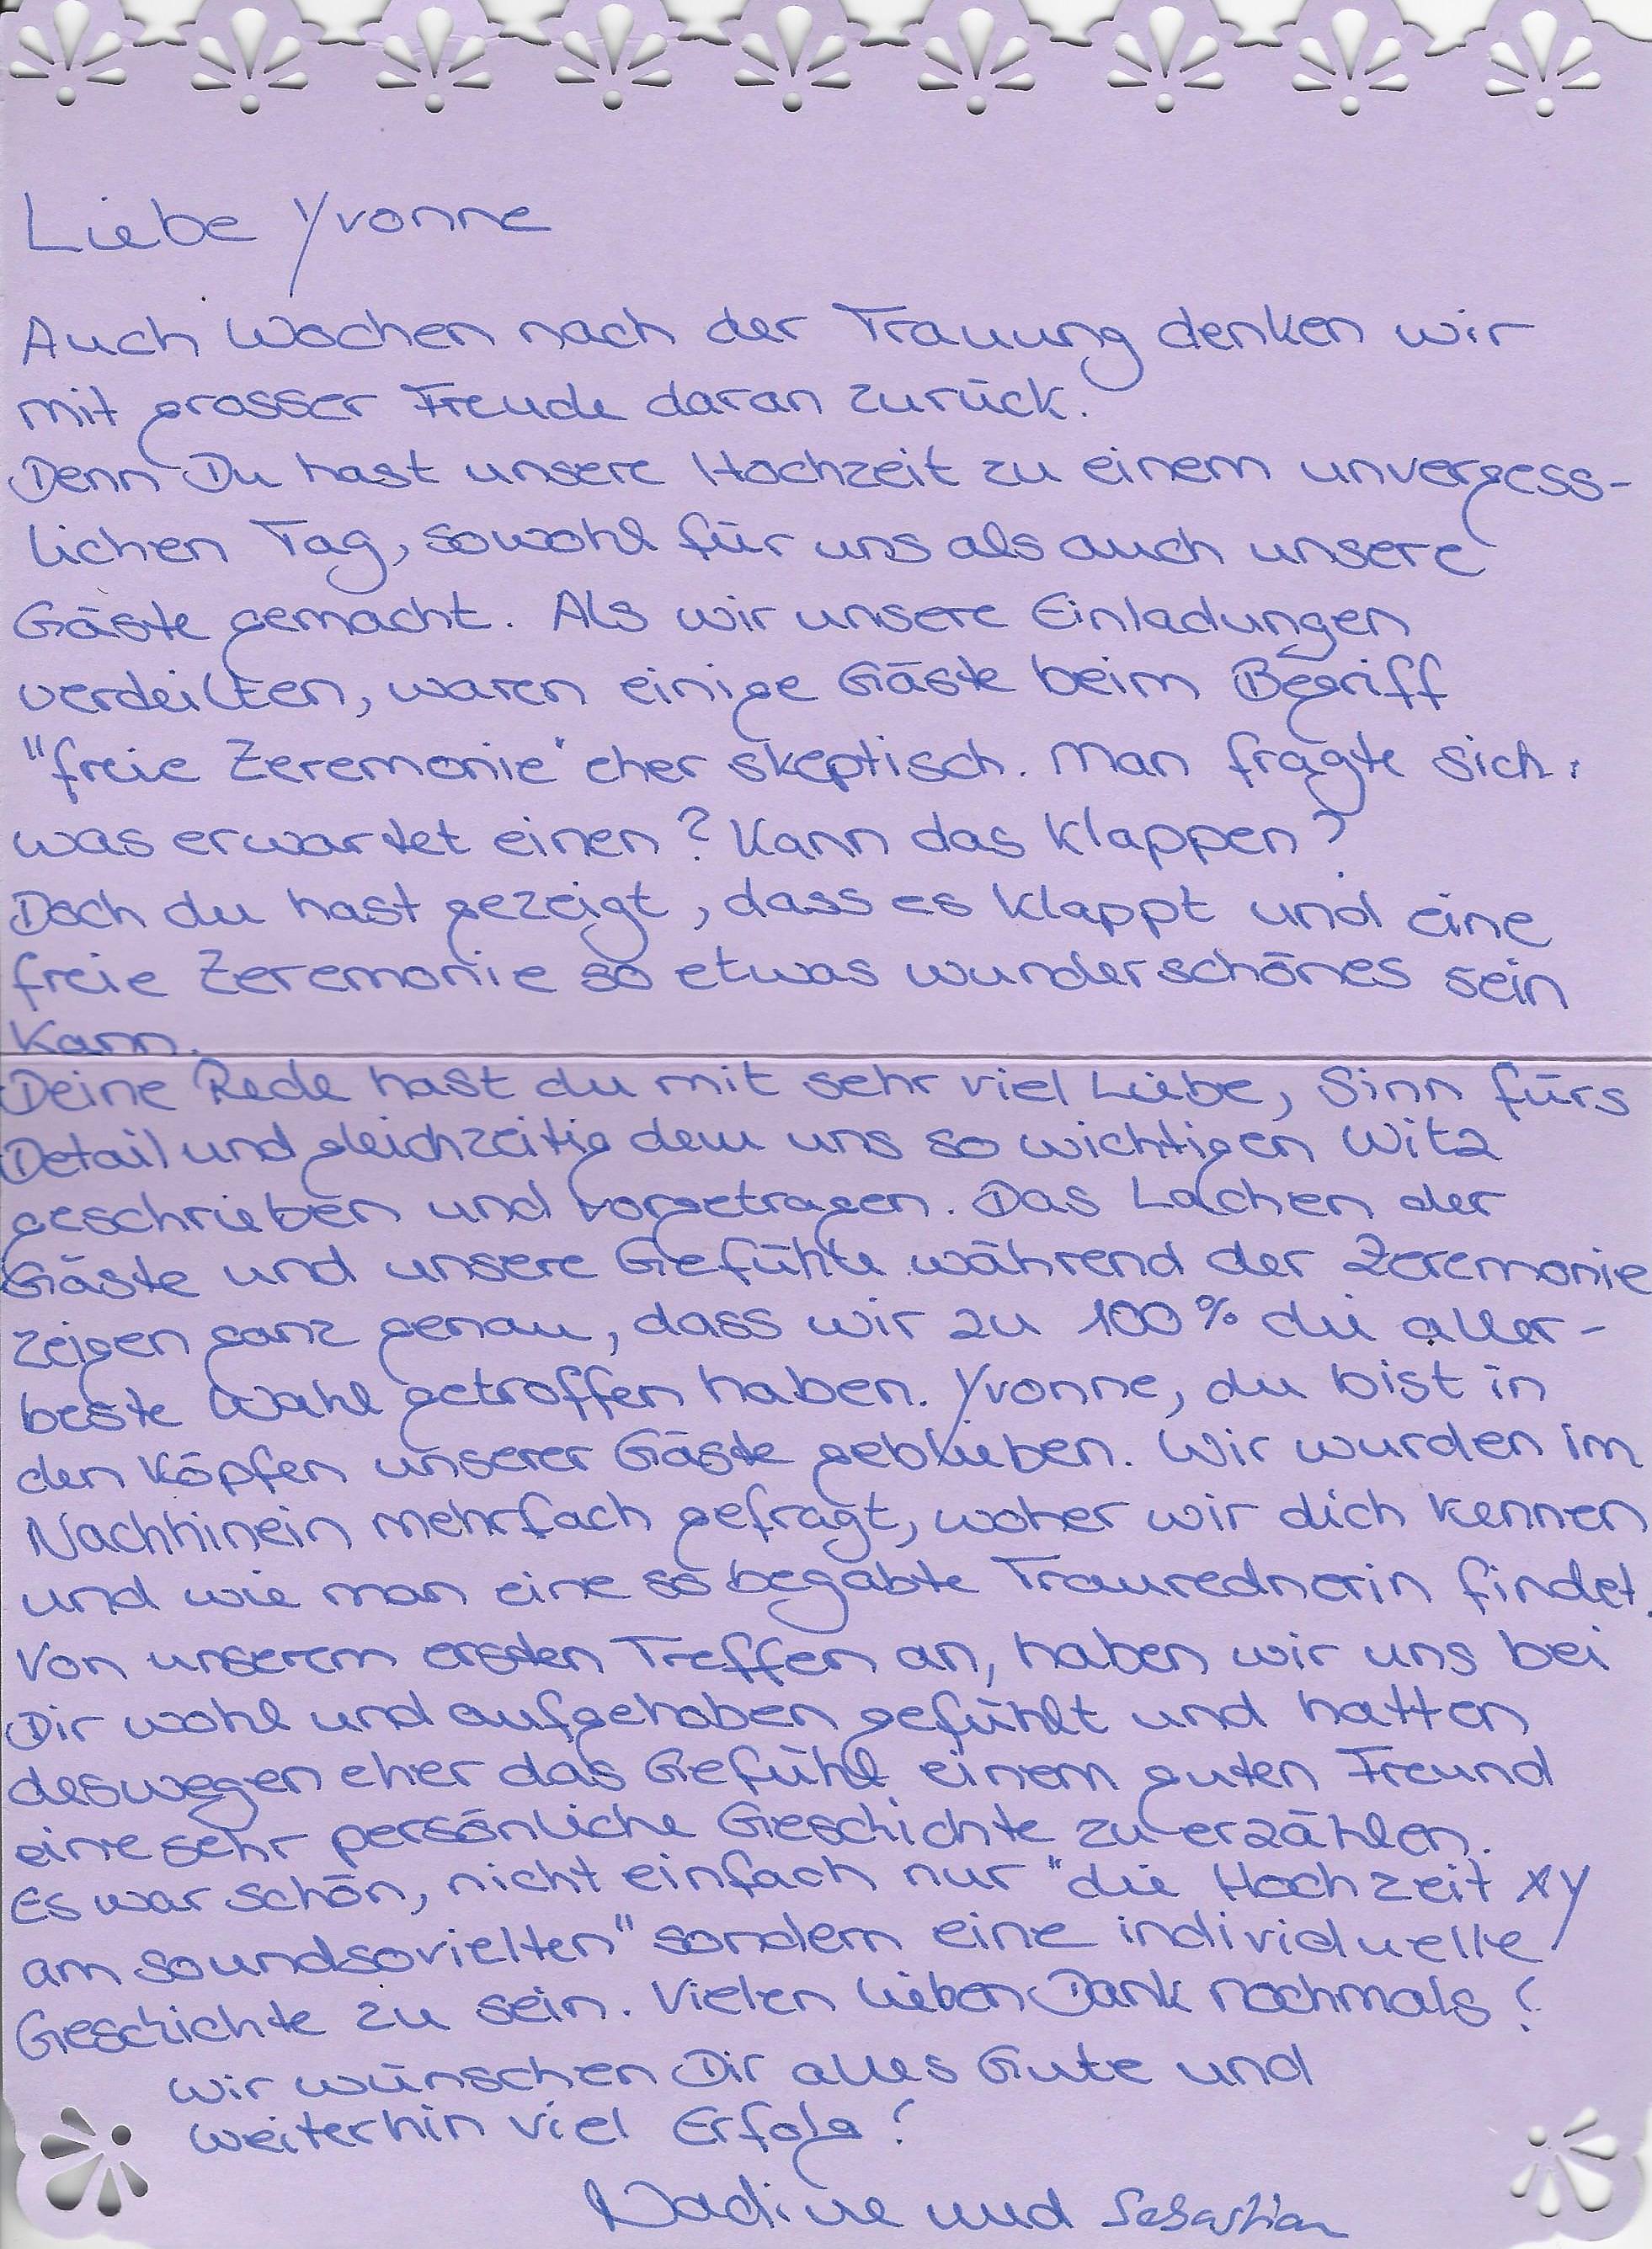 Liebe Yvonne
Auch Wochen nach der Trauung denken wir
mit grosser Freude daran zurück.
Denn Du hast unsere Hochzeit zu einem unvergess-
lichen Tag, sowohl für uns als auch unsere
Gäste gemacht. Als wir unsere Einladungen
verteilten, waren einige Gäste beim Begriff
"freie Zeremonie" eher skeptisch. Man fragte sich,
was erwartet einen? Kann das klappen?
Doch du hast gezeigt, dass es klappt und eine
freie Zeremonie so etwas wunderschönes sein
kann.
Deine Rede hast du mit sehr viel Liebe, Sinn fürs
Detail und gleichzeitig dem uns so wichtigen Witz
geschrieben und vorgetragen. Das Lachen der
Gäste und unsere Gefühle während der Zeremonie
zeigen ganz genau, dass wir zu 100% die aller-
beste Wahl getroffen haben. Yvonne, du bist in
den Köpfen unserer Gäste geblieben. Wir wurden im
Nachhinein mehrfach gefragt, woher wir dich kennen
und wie man eine so begabte Traurednerin findet.
Von unserem ersten Treffen an, haben wir uns bei
Dir wohl und aufgehoben gefühlt und hatten
deswegen eher das Gefühl einem guten Freund
eine sehr persönliche Geschichte zu erzählen.
Es war schön, nicht einfach nur "die Hochzeit xy
am soundsovielten" sondern eine individuelle
Geschichte zu sein. Vielen lieben Dank nochmals!
Wir wünschen Dir alles Gute und
weiterhin viel Erfolg!
Nadine und Sebastian